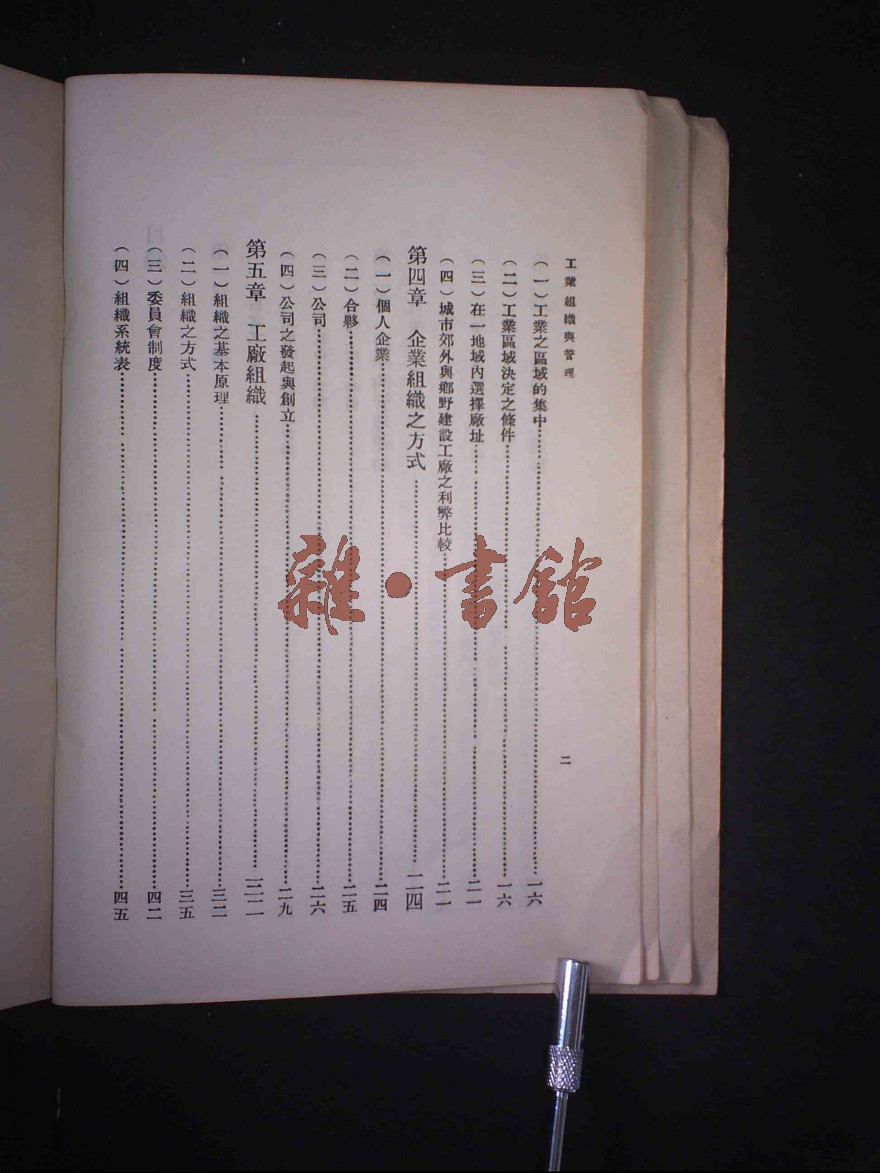 工業組織與管理
二
(一)工業之區域的集中……一六
(二)工業區域決定之條件……一六
(三)在一地域內選擇廠址……二一
(四)城市郊外與鄉野建設工廠之利弊比較……二一
第四章 企業組織之方式……二四
(一)個人企業……二四
(二)合夥……二五
(三)公司……二六
(四)公司之發起與創立……二九
第五章 工廠組織……三二
(一)組織之基本原理……三二
(二)組織之方式……三五
(三)委員會制度……四二
(四)組織系統表……四五
雜·書館